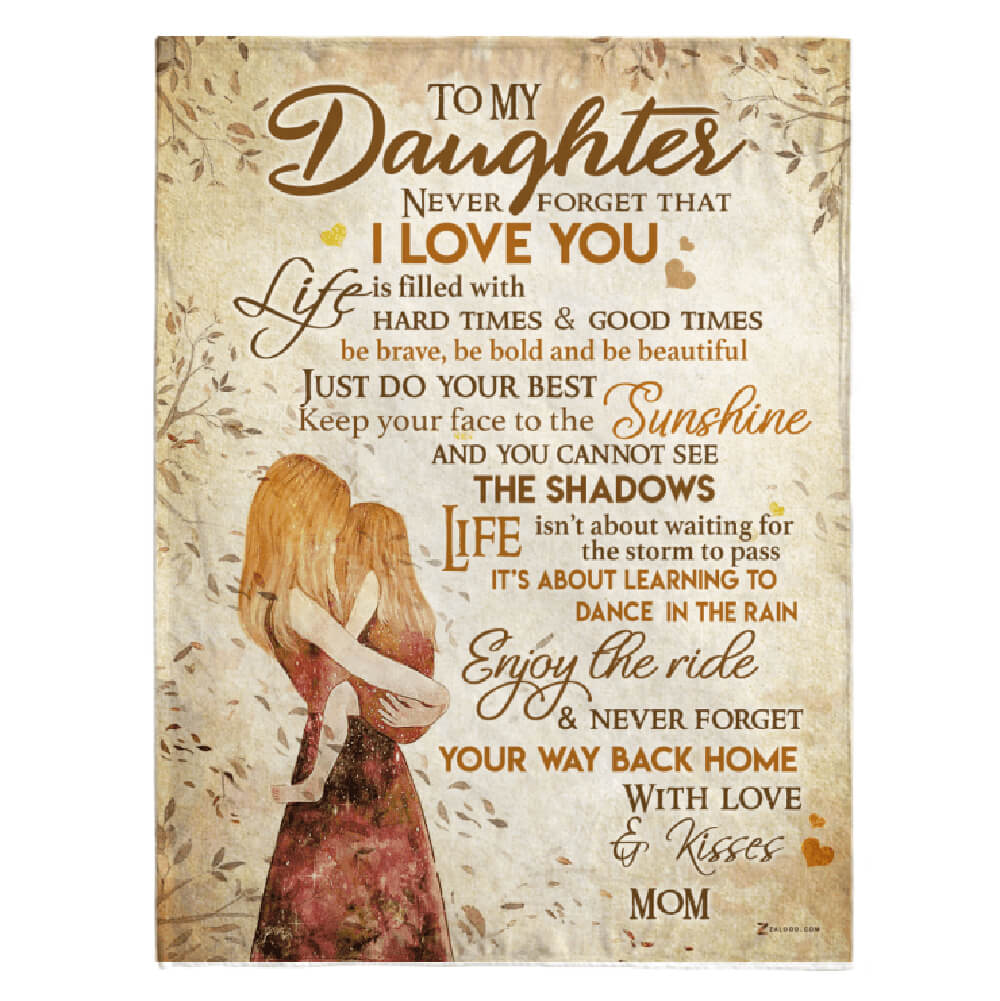 TO MY
Daughter
NEVER FORGET THAT
I LOVE YOU
Life is filled with
HARD TIMES & GOOD TIMES
be brave, be bold and be beautiful
JUST DO YOUR BEST
Keep your face to the Sunshine
AND YOU CANNOT SEE
THE SHADOWS
LIFE isn't about waiting for
the storm to pass
IT'S ABOUT LEARNING TO
DANCE IN THE RAIN
Enjoy the ride
& NEVER FORGET
YOUR WAY BACK HOME
WITH LOVE
& Kisses
MOM